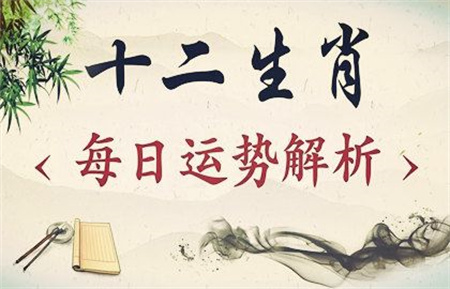 十二生肖
‹ 每日运势解析 ›